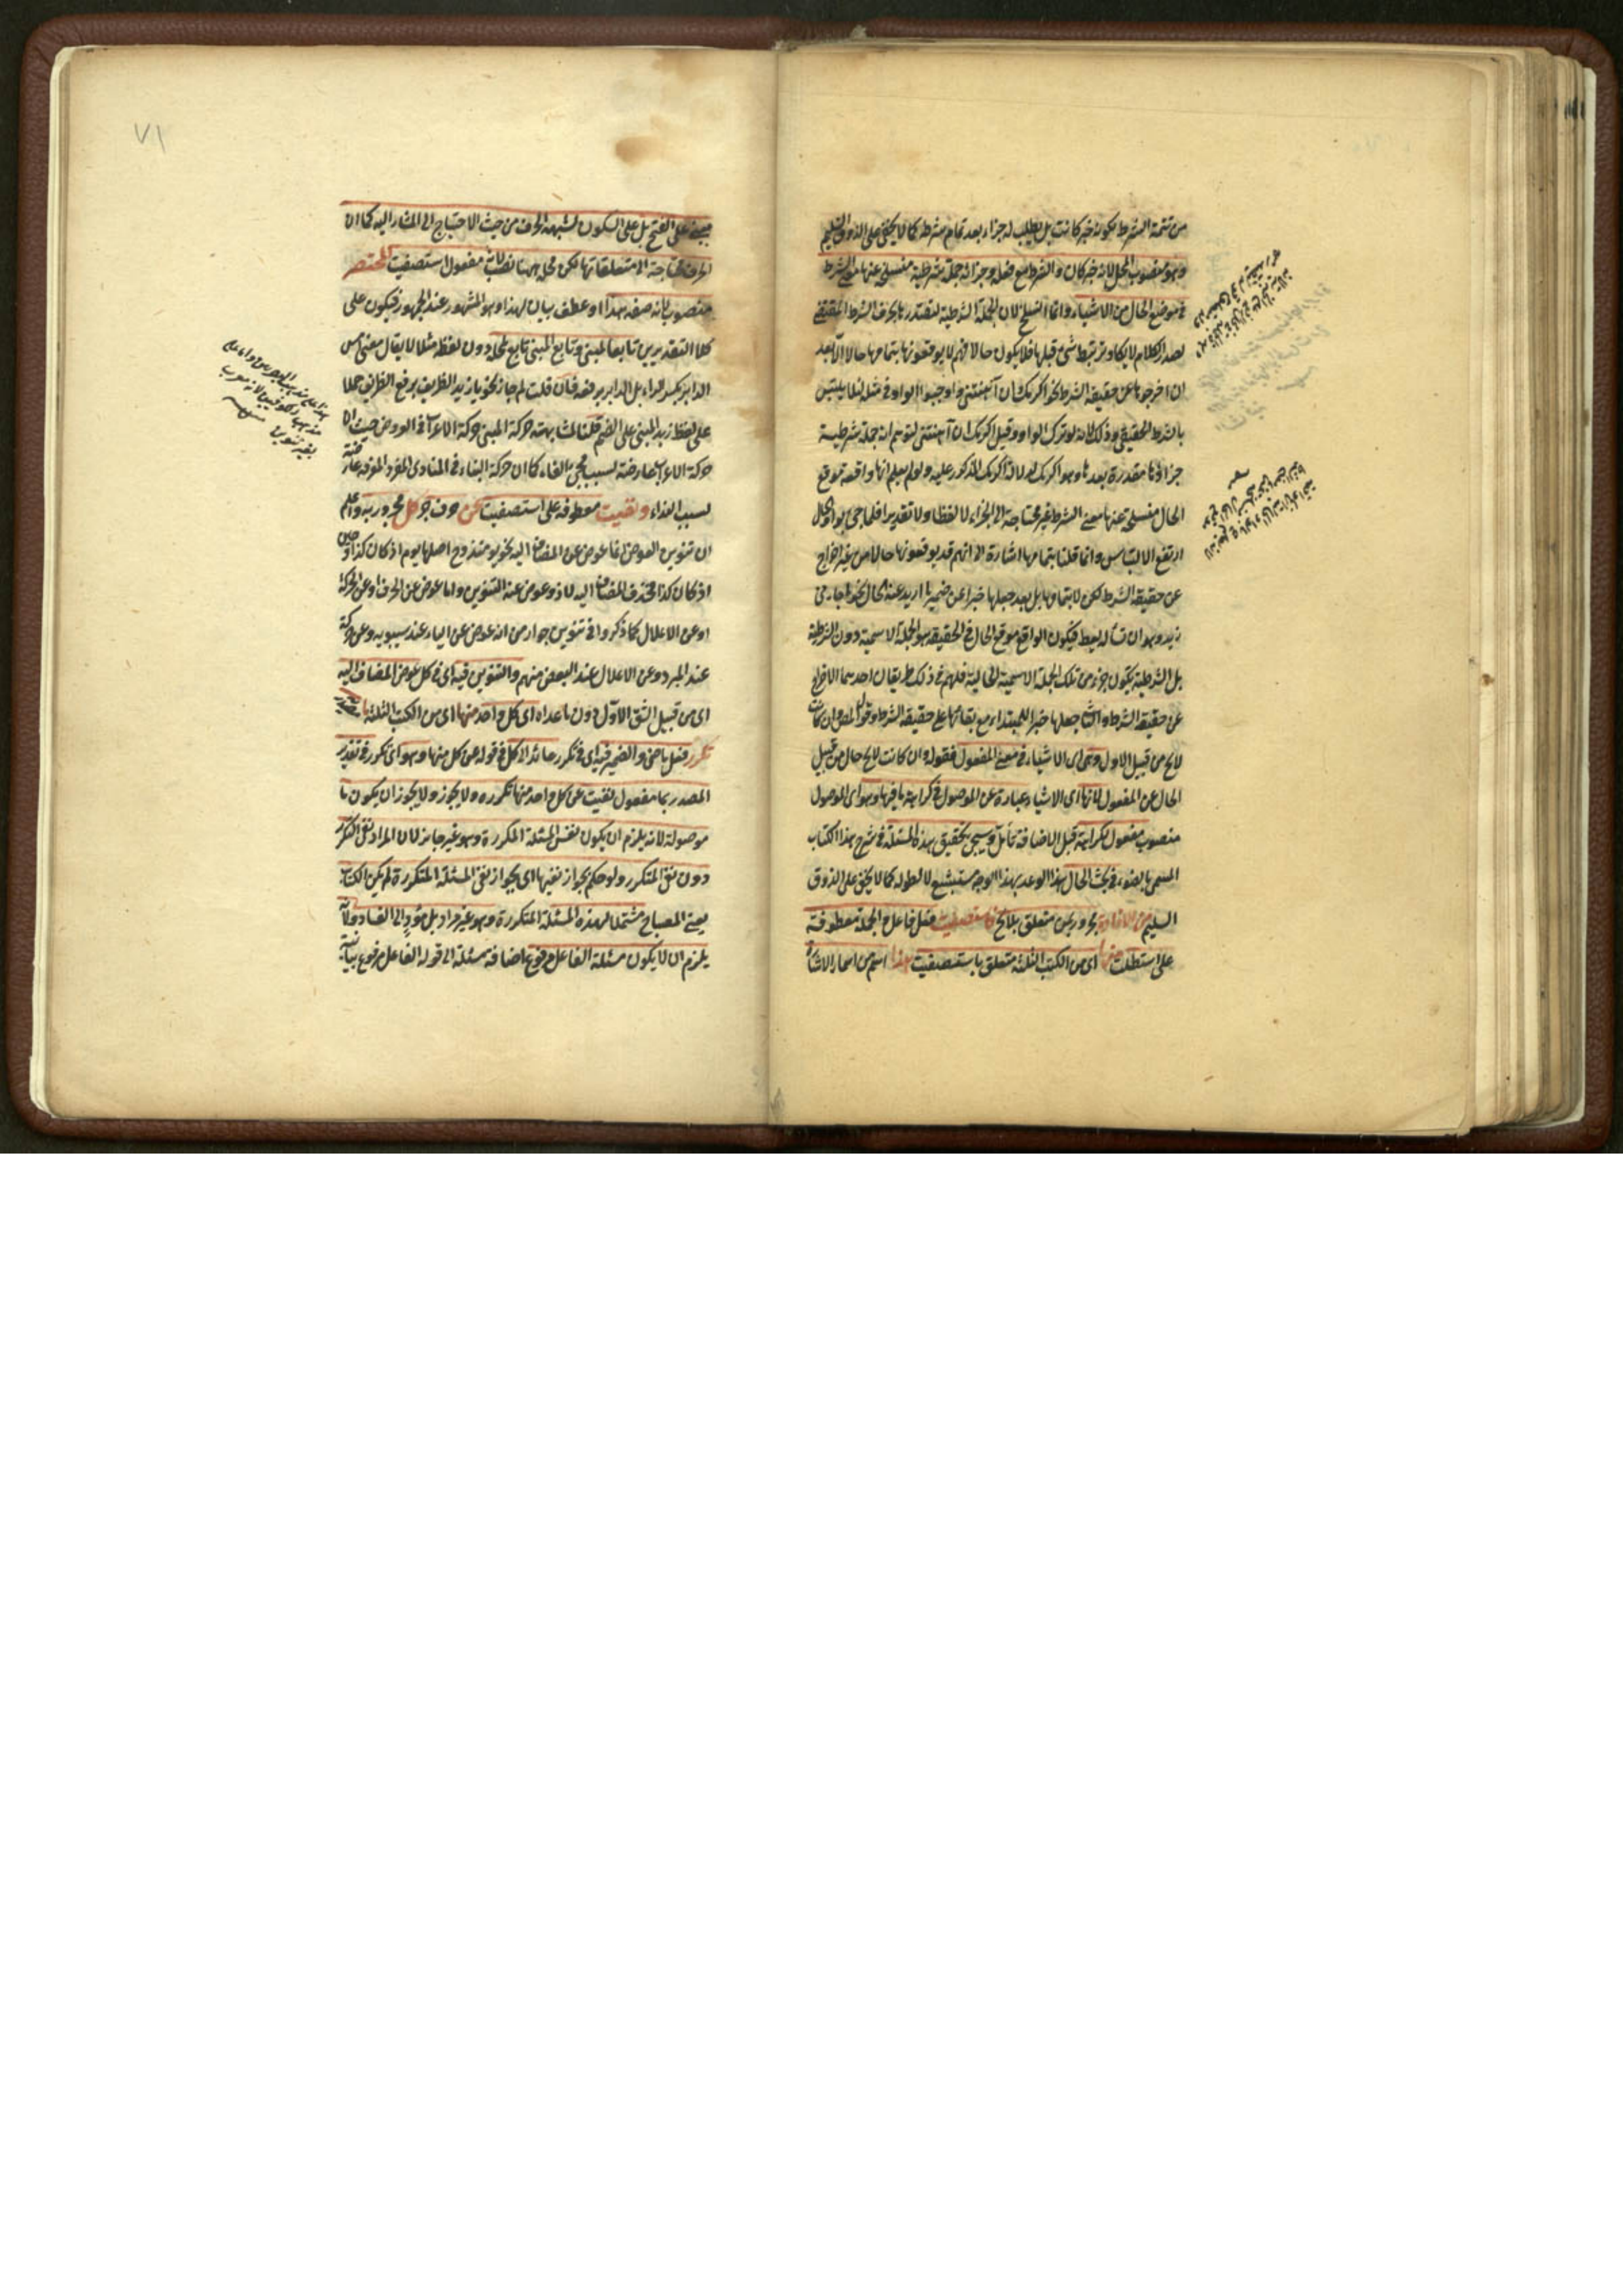 من تتمة الشرط بكونه خبر كانت بل يطلب له جزاء بعد تمام شرطه كما لا يخفى على الذوق السليم
وهو منصوب المحل لانه خبر كان والشرط مع فعله وجزائه جملة شرطية منسلخ عنها معنى الشرط
في موضع الحال من الاشياء وانما انسلخ لان الجملة الشرطية لتصدرها بحرف الشرط المقتضى
لصدر الكلام لا يكاد ترتبط بشئ قبلها فلا يكون حالا فهم لا يوقعونها بتمامها حالا الا بعد
ان اخرجوها عن حقيقة الشرط نحو اكرمك ان آتيتنى واوجبوا الواو في مثله لئلا يلتبس
بالشرط الحقيقى وذلك لانه لو ترك الواو وقيل اكرمك ان آتيتنى لتوهم انه جملة شرطية
جزاؤها مقدرة بعدها وهو اكرمك لدلالة اكرمك المذكور عليه ولم يعلم انها واقعة موقع
الحال منسلخ عنها معنى الشرط غير محتاجة الى الجزاء لا لفظا ولا تقديرا فلما جئ بواو الحال
ارتفع الالتباس وانما قلنا بتمامها اشارة الى انهم قد يوقعونها حالا من غير اخراج
عن حقيقة الشرط لكن لا بتمامها بل بعد جعلها خبرا عن ضمير ما اريد عنه الحال نحو جاءنى
زيد وهو ان تسأله يعط فيكون الواقع موقع الحال في الحقيقة هو الجملة الاسمية دون الشرطية
بل الشرطية يكون جزء من تلك الجملة الاسمية الحالية فلهم في ذلك طريقان احدهما الاخراج
عن حقيقة الشرط والثانى جعلها خبرا للمبتداء مع بقائها على حقيقة الشرط وقول المص وان كانت
لائح من قبيل الاول وهى اى الاشياء في معنى المفعول فقوله وان كانت لائح حال من قبيل
الحال عن المفعول لانها اى الاشياء عبارة عن الموصول في كراهة ما فيها وهو اى الموصول
منصوب مفعول كراهة قبل الاضافة تأمل وسيجئ تحقيق هذه المسئلة في شرح هذا الكتاب
المسمى بالضوء في بحث الحال هذا الوعد بهذا الوجه مستبشع لا لطوله كما لا يخفى على الذوق
السليم من الافادة مجرور بمن متعلق بلائح فاستصفيت فعل فاعل الجملة معطوفة
على استطلت منها اى من الكتب الثلثة متعلق باستصفيت هذا اسم من اسماء الاشارة
مبنى على الفتح بل على السكون لشبهه الحرف من حيث الاحتياج الى المشار اليه كما ان
الحرف محتاجة الى متعلقاتها لكن محله ههنا نصب لانه مفعول استصفيت المختصر
منصوب بانه صفة هذا او عطف بيان لهذا وهو المشهور عند الجمهور فيكون على
كلا التقديرين تابعا لمبنى وتابع المبنى تابع لمحله دون لفظه مثلا لا يقال مضى امس
الدابر بكسر الراء بل الدابر برفعه فان قلت لم جاز نحو يا زيد الظريف برفع الظريف حملا
على لفظ زيد المبنى على الضم قلنا لمشابهته حركة المبنى حركة الاعراب في العروض حيث ان
حركة الاعراب عارضة لسبب مجئ بالفاء كما ان حركة البناء في المنادى المفرد المعرفة عارضة
لسبب النداء ونفيت معطوفة على استصفيت عن حرف جر كل مجرور به واعلم
ان تنوين العوض اما عوض عن المضاف اليه نحو يومئذ وح اصلها يوم اذ كان كذا وحين
اذ كان كذا فحذف المضاف اليه لاذ وعوض عنه التنوين واما عوض عن الحرف او عن الحركة
او عن الاعلال كما ذكروا في تنوين جوار من انه عوض عن الياء عند سيبويه وعن حركة
عند المبرد وعن الاعلال عند البعض منهم والتنوين فيه اى في كل عوض المضاف اليه
اى من قبيل الشق الاول دون ما عداه اى كل واحد منها اى من الكتب الثلثة ما
تكرر فعل ماض والضمير فيه اى في تكرر عائد الى كل في قوله عن كل منها وهو اى تكرر في تقدير
المصدر بما مفعول نفيت عن كل واحد منها تكرره ولا يجوز ولا يجوز ان يكون ما
موصولة لانه يلزم ان يكون نفس المسئلة المكررة وهو غير جائز لان المراد نفى التكرر
دون نفى المتكرر ولو حكم بجواز نفيها اى بجواز نفى المسئلة المتكررة لم يكن الكتاب
يعنى المصباح مشتملا لهذه المسئلة المتكررة وهو غير مراد بل مؤد الى الفساد ولانه
يلزم ان لا يكون مسئلة الفاعل مرفوع اضافة مسئلة الى قوله الفاعل مرفوع بيانية
٧١